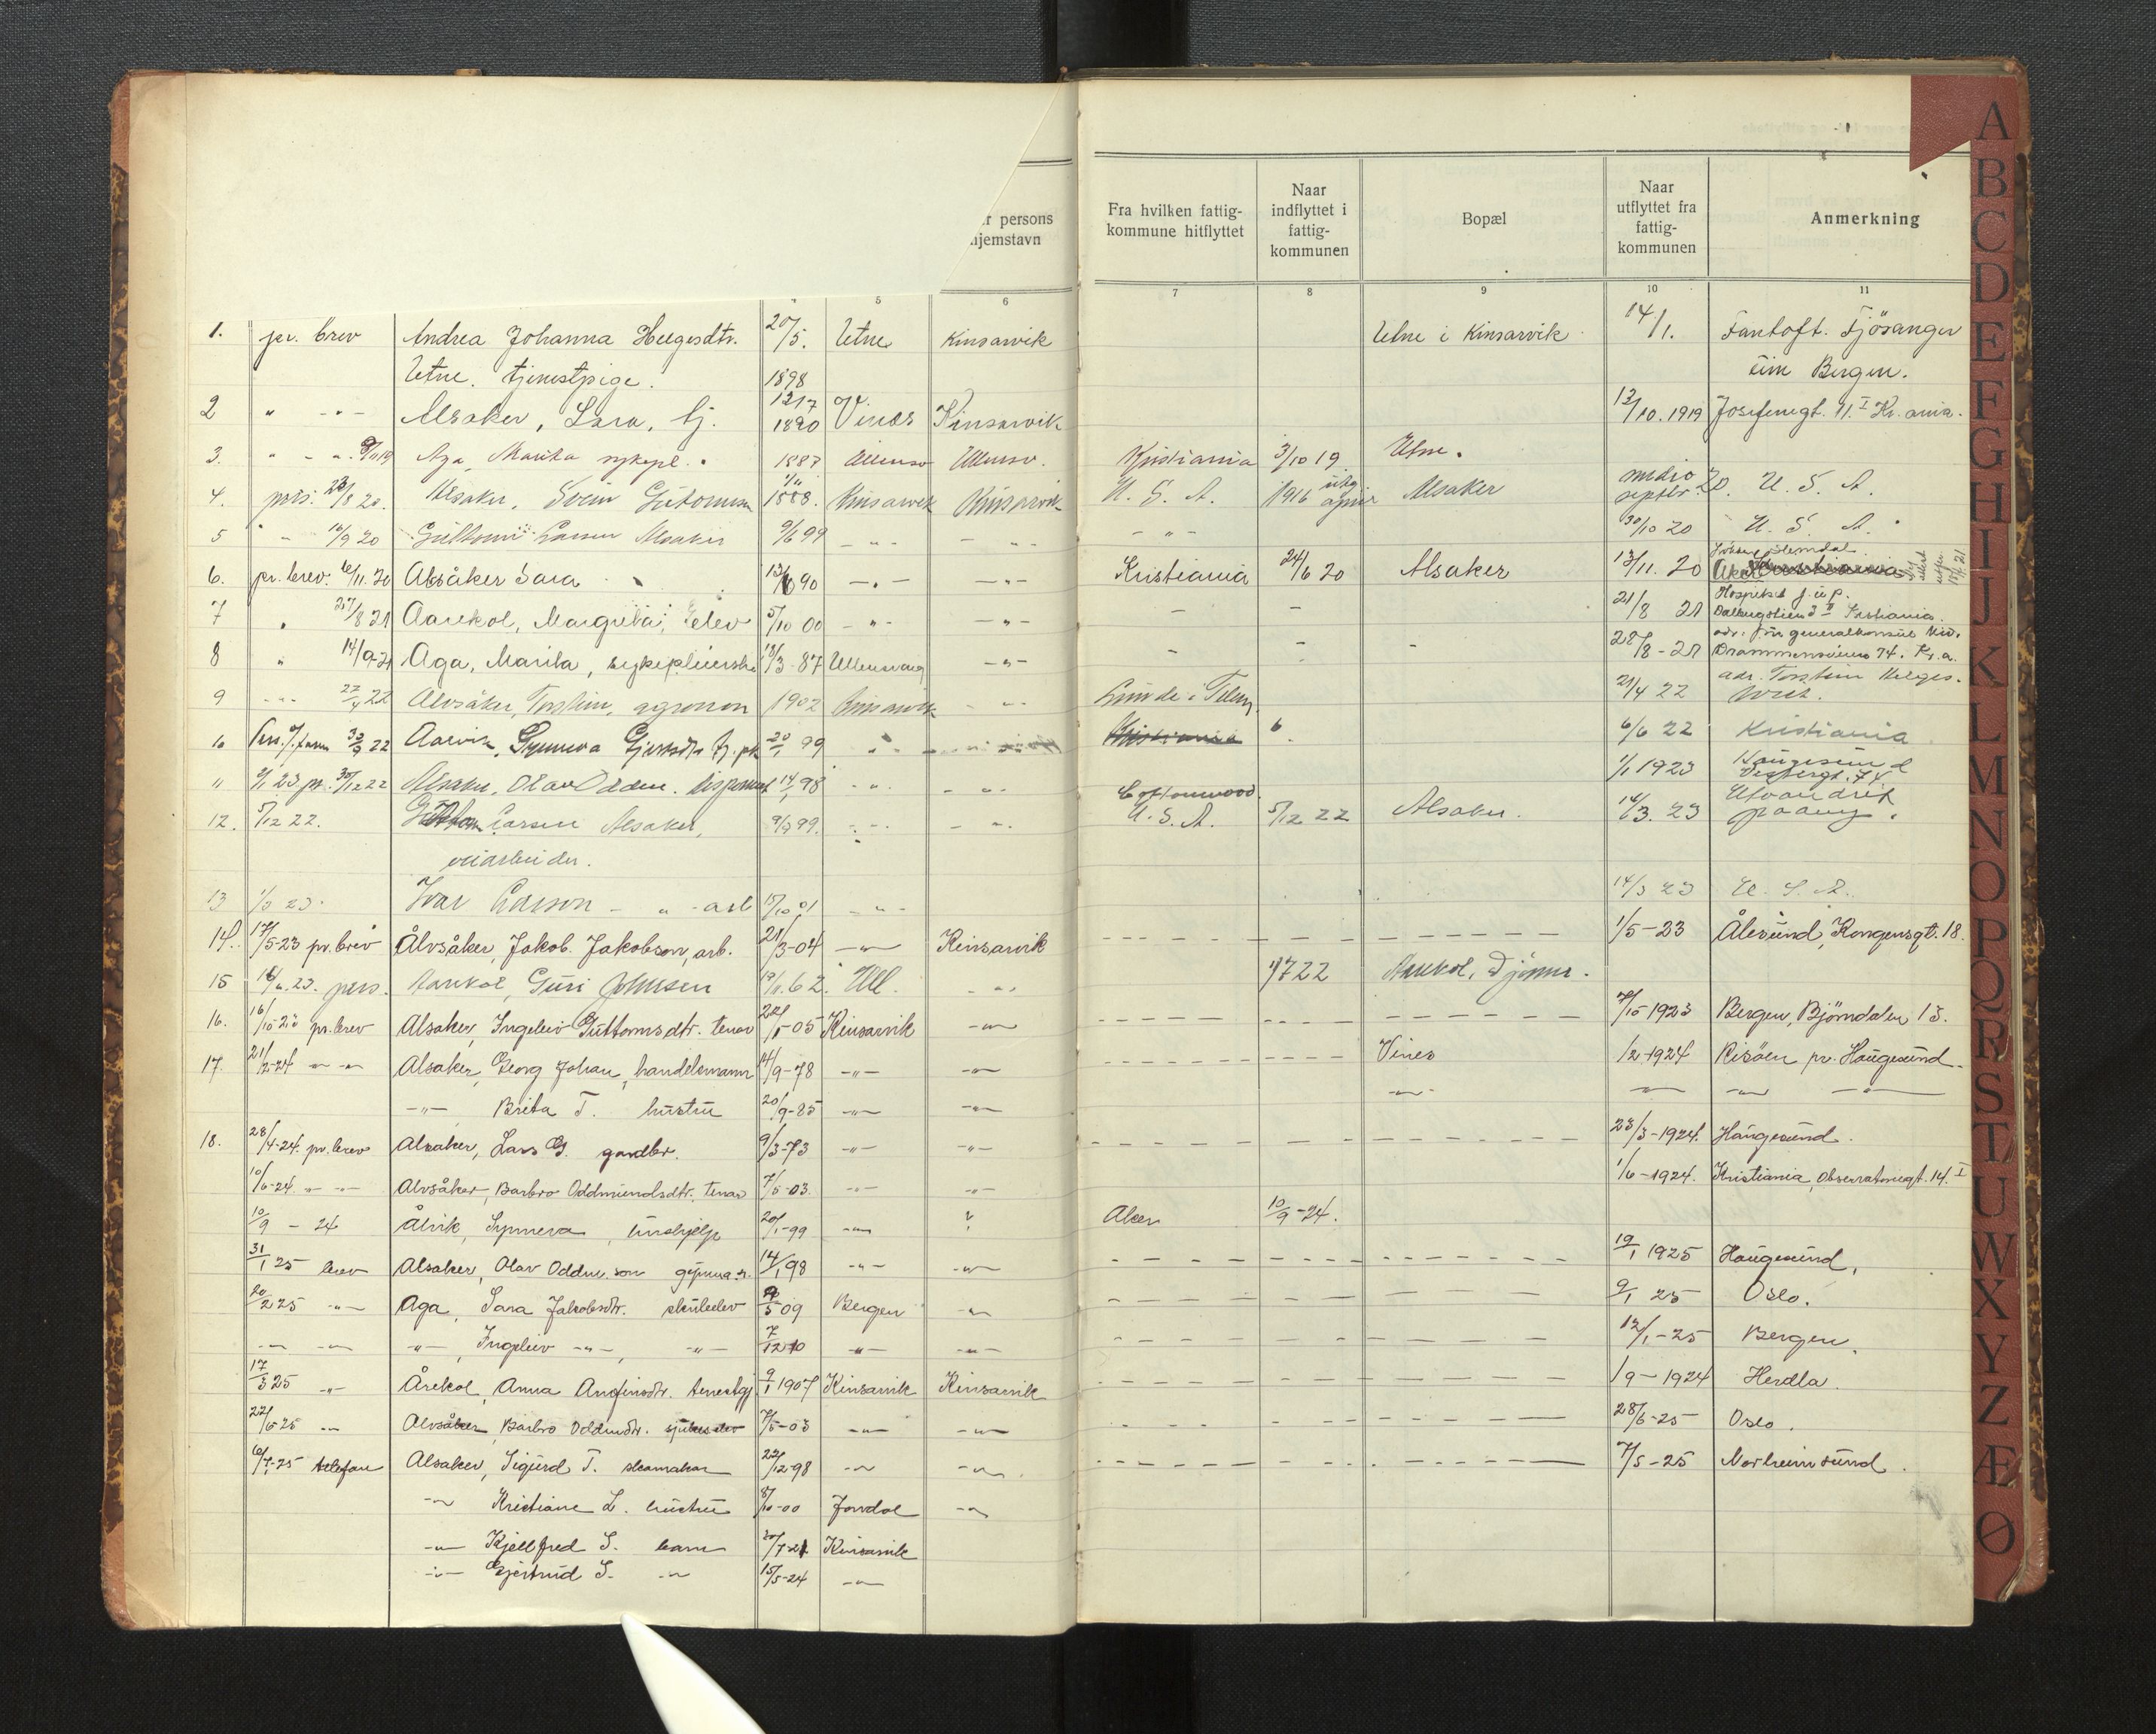 r persons
hjemstavn
Fra hvilken fattig-
kommune hitflyttet
Naar
indflyttet i
fattig-
kommunen
Bopæl
Naar
utflyttet fra
fattig-
kommunen
Anmerkning
5 6 7 8 9 10 11
1. pr. brev Andrea Johanna Helgesdtr. 20/5. Utne Kinsarvik Utne i Kinsarvik 14/1. Fantoft. Fjösanger
Utne. tjenestpige. 1898 Bergen.
2 " - " - Alsaker, Sara, tj. 1890 Vines Kinsarvik 13/10.1919 Josefinegt. 11. I Kr.ania.
3. " - " Aga, Marita sykepl. 1887 Ullensv Ullensv. Kristiania 3/10 19 Utne.
4. 23/8 20. Alsaker, Svein Guttormsen 1888. Kinsarvik Kinsarvik U. S. A. 1916 april Alsaker medio septbr. 20. U. S. A.
5 " - 16/9 20 Guttorm Larsen Alsaker 9/6 99 - " - - " - - " - 30/10 20 U. S. A.
6. pr. brev. 6/11. 20 Alsåker Sara 13/6 90 - " - - " - Kristiania 24/6 20 Alsaker 13/11. 20 Aker
7 " 27/8 21 Aarekol, Margreta, elev 5/10 00 - " - - " - - - 21/8 21 Hospitset
8 " 14/9-21 Aga, Marita, sykepleierske 13/3-87 Ullensvang - " - - - - 28/8-21 adr. fru generalkonsul
Drammensveien 74. Kr.a.
9 - " - 22/4 22 Alvsåker, Torstein, agronom 1902 Kinsarvik - " - Lunde i Telem. 21/4 22 adr. Torstein Helges-
10 Aarvik, Synneva 20/1 99 " - Kristiania 6 6/6 22 Kristiania
11 30/12 22 Alsaker, Olav Oddm. 14/1 98 - " - - " - 1/1 1923 Haugesund
12. 5/12 22. Larsen Alsaker, 9/6 99. - " - - " - Cottonwood U. S. A. 5/12 22 Alsaker. 14/3. 23 Utvandret paany.
veiarbeider.
13 1/3 23. Ivar Larson - " - arb 15/10 01 - " - 14/3 23 U. S. A.
14. 17/5-23 pr. brev Ålvsåker, Jakob Jakobson, arb. 21/3-04 - " - Kinsarvik 1/5-23 Ålesund, Kongensgt. 18.
15 pers. Aarekol, Guri Johnsen 62. Ull. - " - 22 Aarekol, Djönne.
16. 16/10-23 pr. brev Alsaker, Ingeleiv Guttormsdtr. tenar 22/1-05 Kinsarvik - " - 7/10 1923 Bergen, Björndalen 13.
17. 21/2-24 - " - - " - Alsaker, Georg Johan, handelsmann 14/9-78 - " - - " - Vines 1/2-1924 Risöen pr. Haugesund.
- " - Brita T. hustru 20/9-85 - " - - " - - " - - " - - " - - " -
18. 28/4-24. pr. brev Alsaker, Lars G. gardbr. 9/3-73 - " - - " - 23/3-1924. Haugesund.
10/6-24. - " - - " - Alvsåker, Barbro Oddmundsdtr. tenar 7/5-03. - " - - " - 1/6-1924. Kristiania, Observatoriegt. 14. I
10/9 - 24 Ålvik, Synneva, hushjelp 20/1-99 - " - ? Aker 10/9-24.
31/1 25 brev Alsaker, Olav Oddm.son gymna.s. 14/1 98 - " - - " - 19/1 1925 Haugesund.
20/2 25 - " - Aga, Sara Jakobsdtr. skuleelev 9/5 09 Bergen - " - 9/1 25 Oslo.
- " - - " - - " -, Ingeleiv - " -, - " - 7/12 10 - " - - " - 12/1-25 Bergen.
17/3 25 - " - Årekol, Anna Anfinsdtr. tenestgj 9/1 1907 Kinsarvik Kinsarvik 1/9-1924 Herdla.
22/6-25 - " - Alvsåker, Barbro Oddmdtr. sjukeelev 7/5-03 - " - - " - 28/6-25 Oslo.
6/7-25 telefon Alsaker, Sigurd T. skomakar 22/12 98 - " - - " - 7/5-25 Norheimsund.
- " - Kristiane L. hustru 8/10-00 Jondal - " -
- " - Kjellfred S. barn 20/7-21 Kinsarvik
- " - Gjertrud S. - " - 15/5-24 - " -
A
B
C
D
E
F
G
H
I
J
K
L
M
N
O
P
Q
R
S
T
U
W
X
Y
Z
Æ
Ø